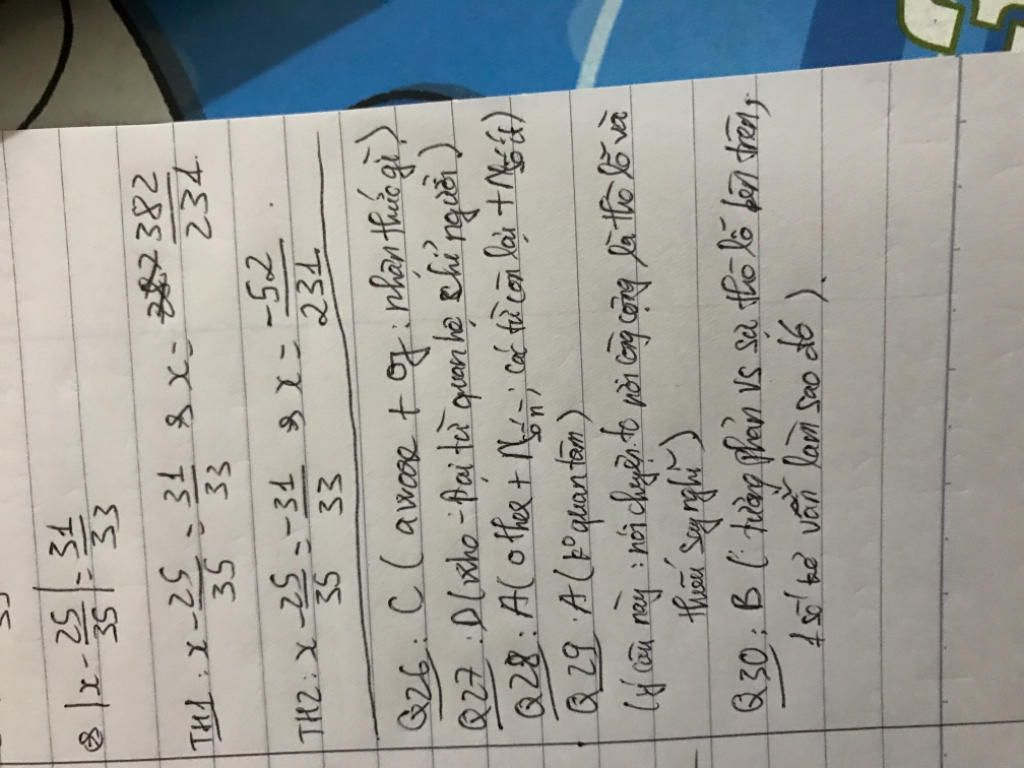 ⊗ |x - 25/35| = 31/33
TH1: x - 25/35 = 31/33 x = 382/231
TH2: x - 25/35 = -31/33 x = -52/231
Q26: C (aware + of: nhận thức gì)
Q27: D (who - Đại từ quan hệ chỉ người)
Q28: A (other + N số n; các từ còn lại + N số ít)
Q29: A (k° quan tâm)
(ý câu này: nói chuyện to nơi công cộng là thô lỗ và
thiếu suy nghĩ)
Q30: B (: tương phản vs sự thô lỗ bên trên,
1 số trẻ vẫn làm sao đó).